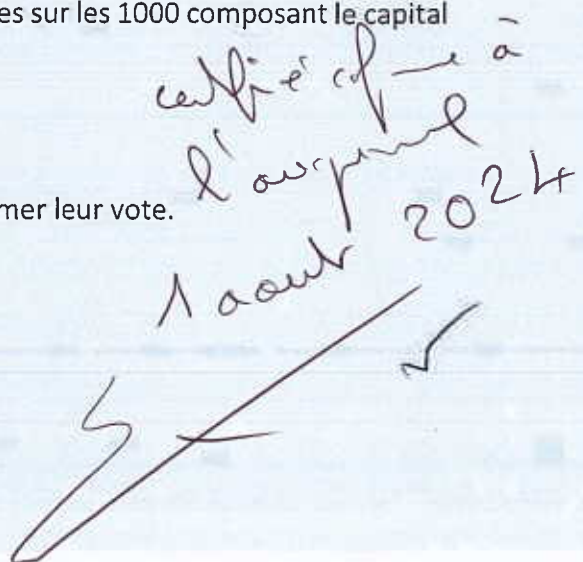 es sur les 1000 composant le capital
certifié conforme à
l'original
mer leur vote.
1 aout 2024